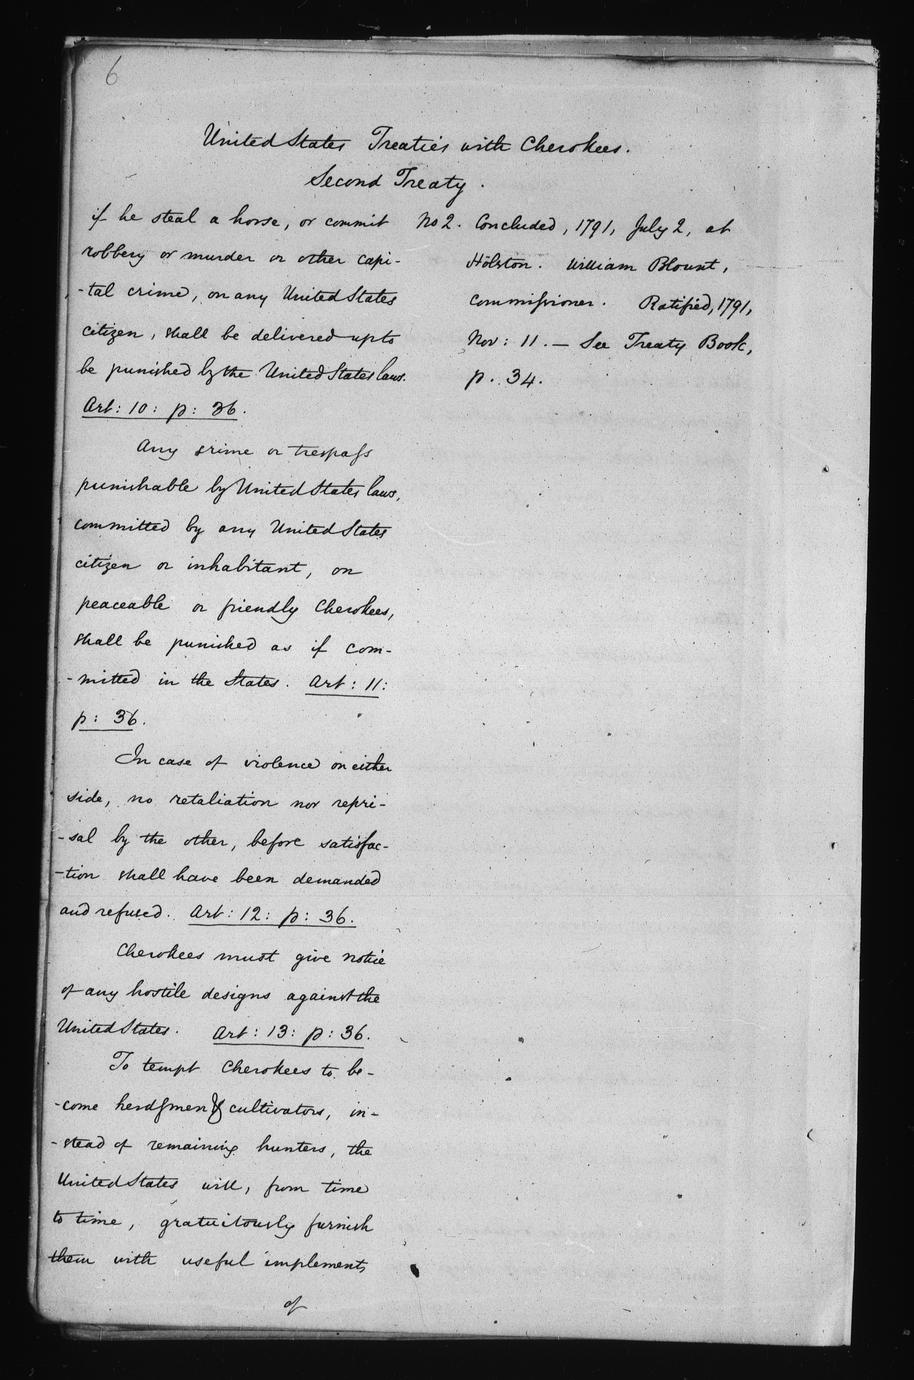 6
United States Treaties with Cherokees.
Second Treaty.
if he steal a horse, or commit
robbery or murder or other capi-
-tal crime, on any United States
citizen, shall be delivered up to
be punished by the United States laws.
Art: 10: p: 36.
Any crime or trespass
punishable by United States laws,
committed by any United States
citizen or inhabitant, on
peaceable or friendly Cherokees,
shall be punished as if com-
-mitted in the States. Art: 11:
p: 36.
In case of violence on either
side, no retaliation nor repri-
-sal by the other, before satisfac-
-tion shall have been demanded
and refused. Art: 12: p: 36.
Cherokees must give notice
of any hostile designs against the
United States. Art: 13: p: 36.
To tempt Cherokees to be-
-come herdsmen & cultivators, in-
-stead of remaining hunters, the
United States will, from time
to time, gratuitously furnish
them with useful implements
of
No 2. Concluded, 1791, July 2, at
Holston. William Blount,
Commissioner. Ratified, 1791,
Nov: 11. — See Treaty Book,
p. 34.